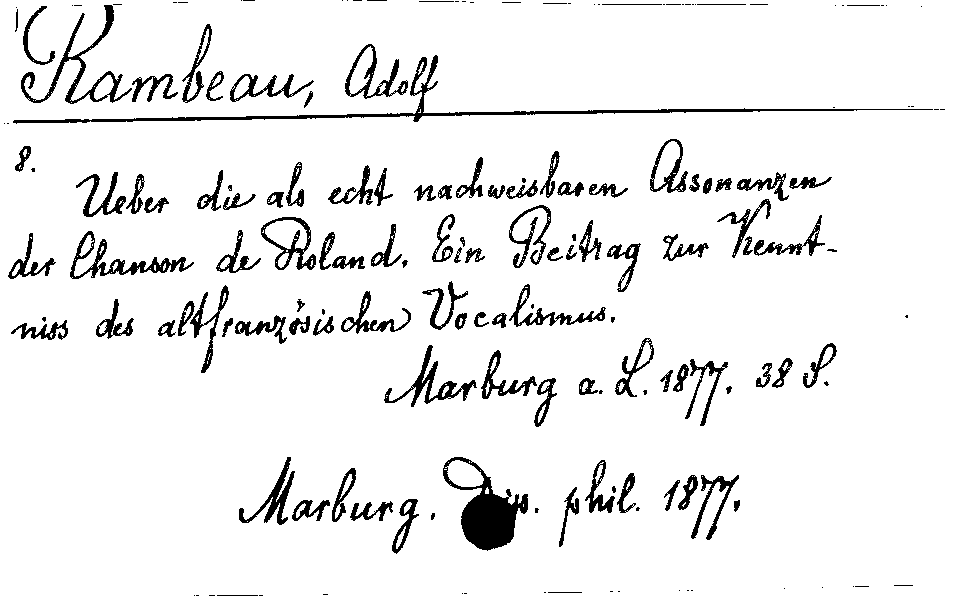 Rambeau, Adolf
8.
Ueber die als echt nachweisbaren Assonanzen
der Chanson de Roland. Ein Beitrag zur Kennt-
niss des altfranzösischen Vocalismus.
Marburg a. L. 1877. 38 S.
Marburg. Diss. phil. 1877.